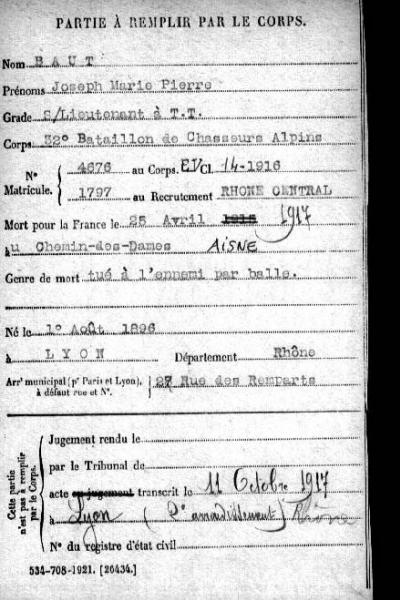 PARTIE À REMPLIR PAR LE CORPS.
Nom BAUT
Prénoms Joseph Marie Pierre
Grade S/Lieutenant à T.T.
Corps 32° Bataillon de Chasseurs Alpins
N° Matricule. { 4676 au Corps. EV Cl 14-1916
1797 au Recrutement RHONE CENTRAL
Mort pour la France le 25 Avril 1915 1917
à u Chemin-des-Dames AISNE
Genre de mort tué à l'ennemi par balle.
Né le 1° Août 1896
à LYON Département Rhône
Arr' municipal (p' Paris et Lyon), à défaut rue et N°. } 27 Rue des Remparts
Cette partie n'est pas à remplir par le Corps.
Jugement rendu le
par le Tribunal de
acte ou jugement transcrit le 11 Octobre 1917
à Lyon (2e arrondissement) Rhône
N° du registre d'état civil
534-708-1921. [26434.]